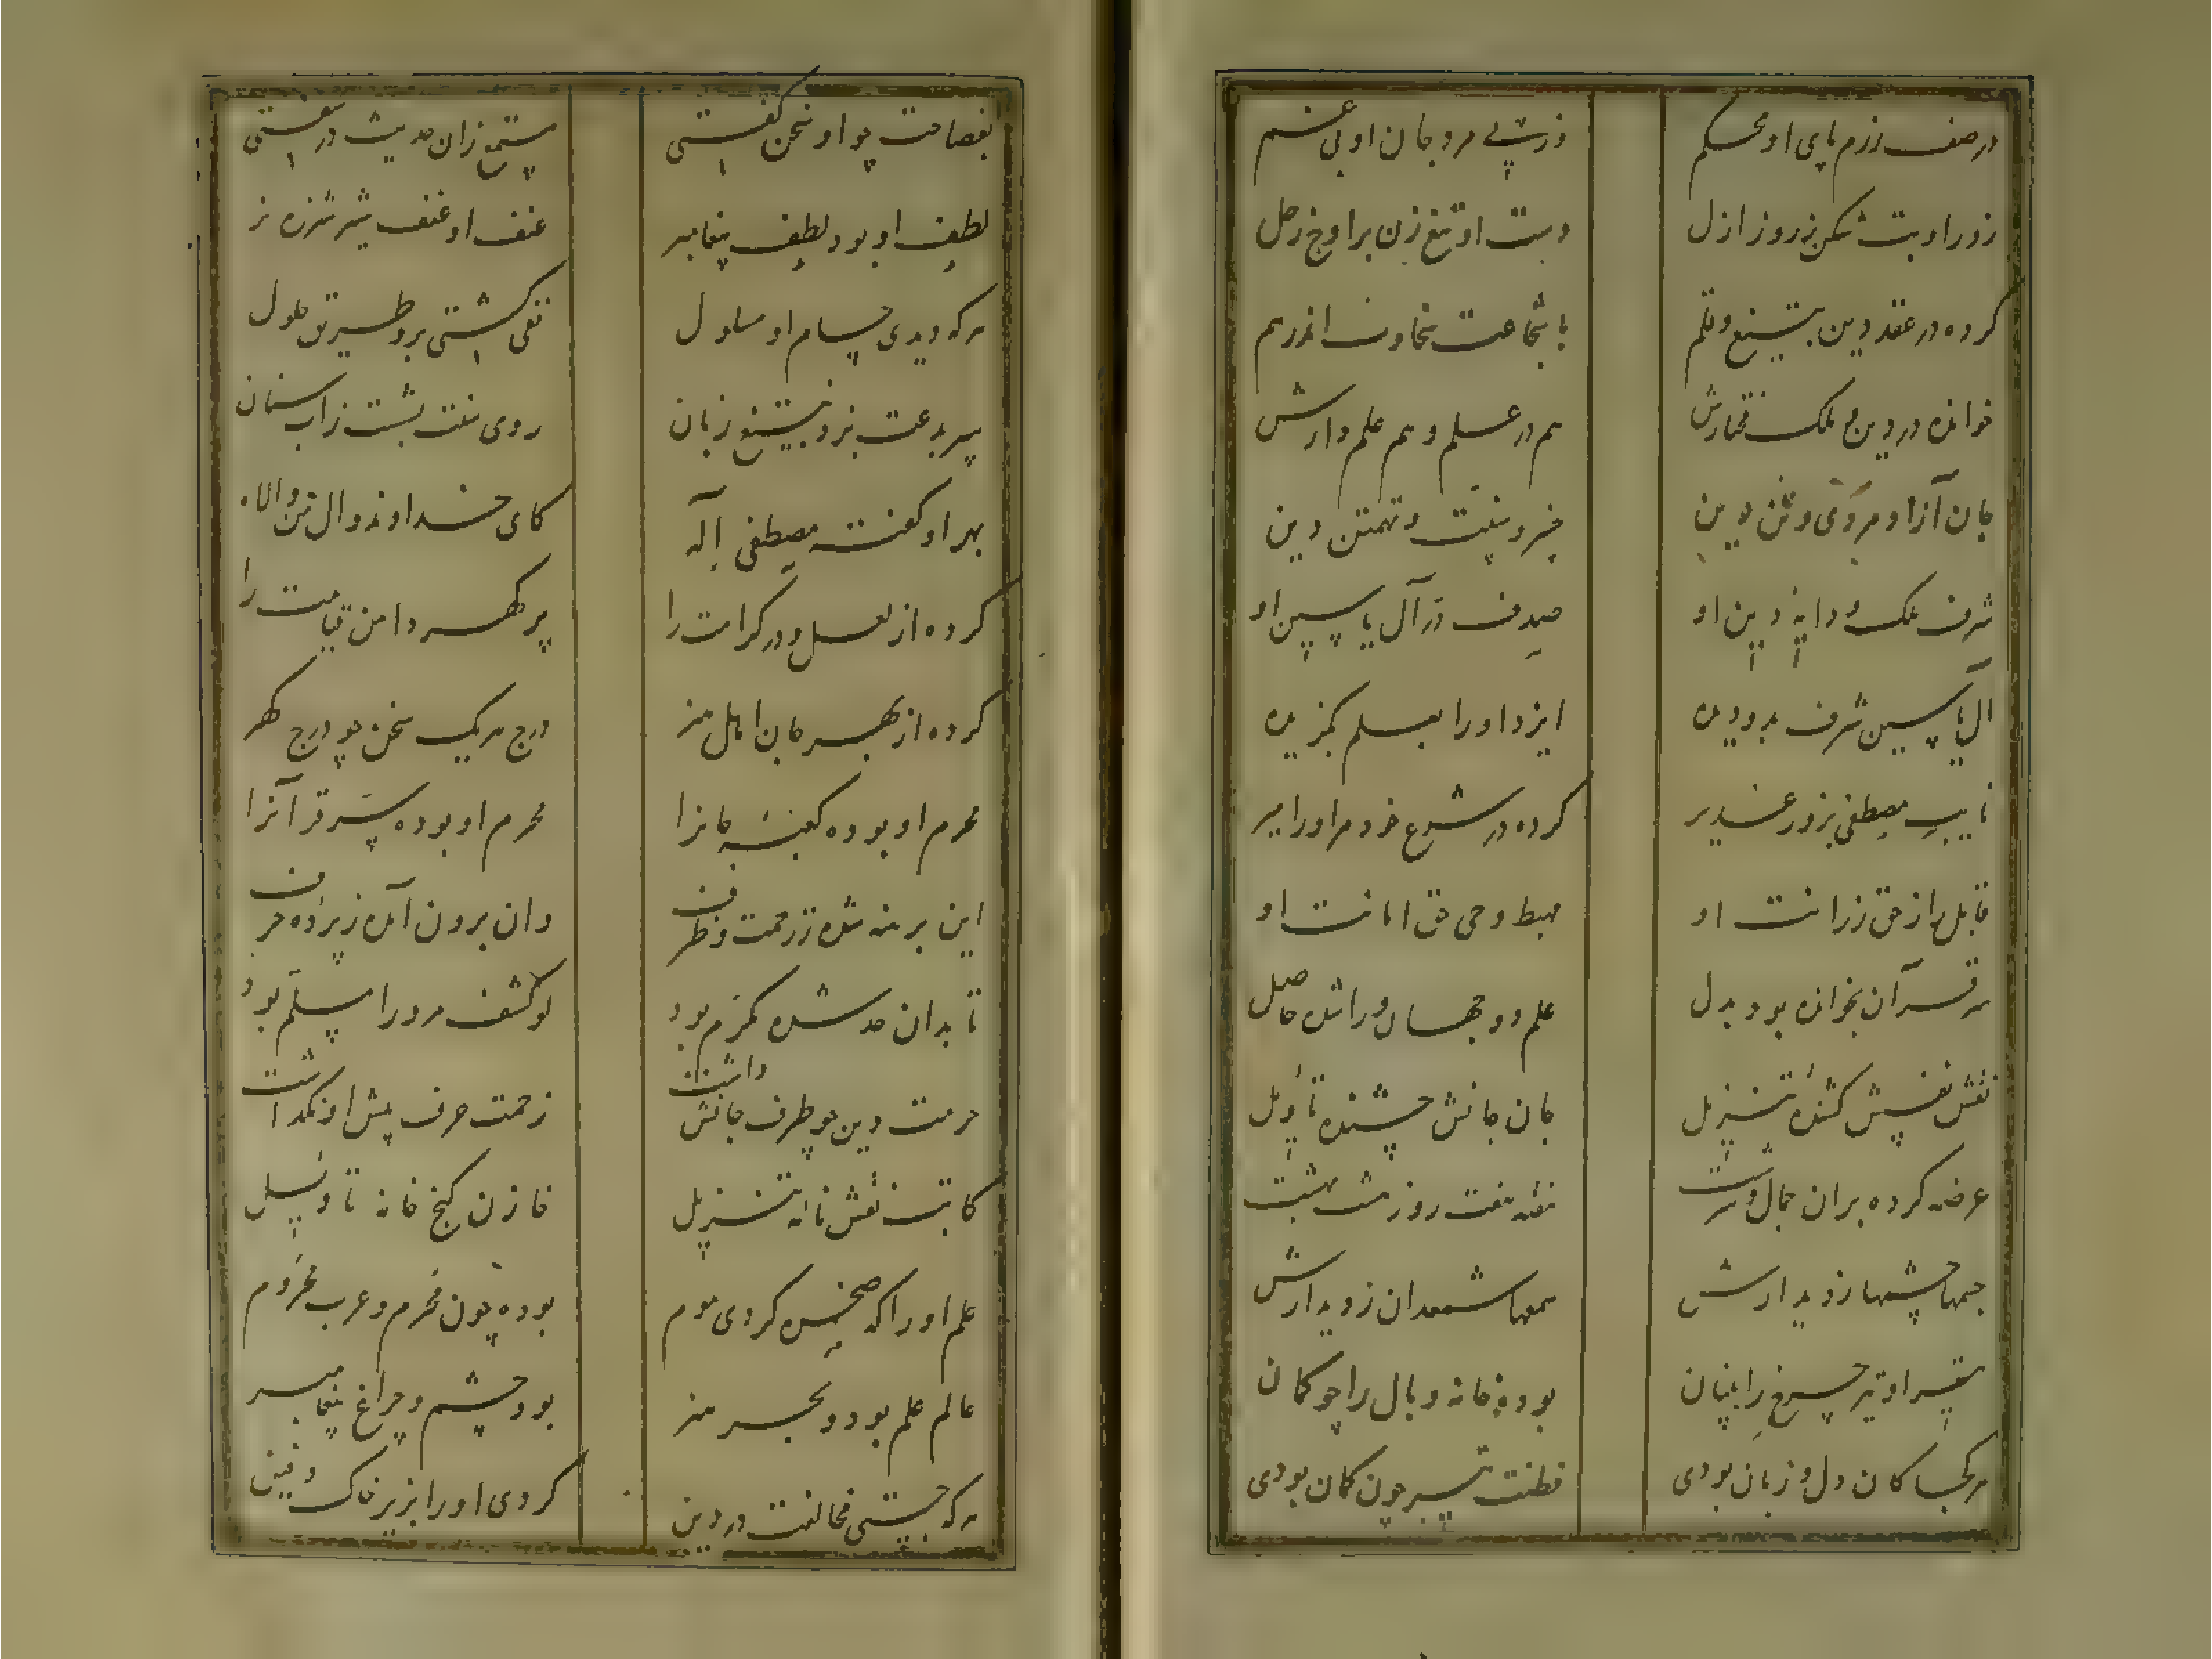 در صف رزم پای او محکم
وز پی مرد جان او بی غم
زور او بت شکن ز روز ازل
دست او تیغ زن بر اوج زحل
کرده در عقد دین بتیغ و قلم
با شجاعت سخاوت اندر هم
خوانده در دین و ملک مختارش
هم در علم و هم علم دارش
شرف ملک و دایه دین او
صدف در آل یاسین او
آل یاسین شرف بدو دیده
ایزد او را بعلم بگزیده
نایب مصطفی بروز غدیر
کرده در شرع خود مر او را میر
قابل راز حق رزانت او
مهبط وحی حق امانت او
سر قرآن بخوانده بود بدل
علم دو جهان ورا شده حاصل
نقش نفسش کشنده تنزیل
جان جانش چشنده تاویل
عرضه کرده بران جمال و سرشت
هفت روز هشت بهشت
چشمها ز دیدارش
سمعها شمعدان ز دیدارش
تیر او تیر چرخ را بنیان
بوده خانه وبال را چو کمان
هر کجا کان دل و زبان بودی
فطنت تیر چون کمان بودی
بفصاحت چو او سخن گفتی
مستمع زان حدیث در سفتی
لطف او بود لطف پیغامبر
عنف او عنف شیر شرزه نر
هر که دیدی حسام او مسلول
نفی گشتی برو طریق حلول
سر بدعت بزد بتیغ زبان
روی سنت بشست ز آب سنان
بهر او گفت مصطفی باله
کای خداوند وال من والاه
کرده از لعل و در کرامت را
پر گهر دامن قیامت را
کرده از بهر جان اهل هنر
درج هر یک سخن چو درج گهر
محرم او بوده کعبه جانرا
محرم او بوده سر قرآنرا
این برهنه شده ز زحمت ظرف
وان برون آمده ز پرده حرف
تا بدان حد شده مکرم بود
لو کشف مر ورا مسلم بود
حرمت دین چو ظرف جانش داشت
زحمت حرف پیش او نگذاشت
کاتب نقش نامه تنزیل
خازن گنج خانه تاویل
علم او را که صخره کردی موم
بوده چون محرم و عرب محروم
عالم علم بود و بحر هنر
بود چشم و چراغ پیغامبر
هر که جستی مخالفت در دین
کردی او را بزیر خاک دفین